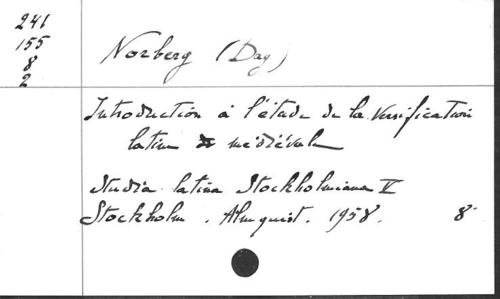 241
155
8
2
Norberg (Dag)
Introduction à l'étude de la versification
latine médiévale
Studia latina Stockholmiana V
Stockholm. Almquist. 1958. 8°